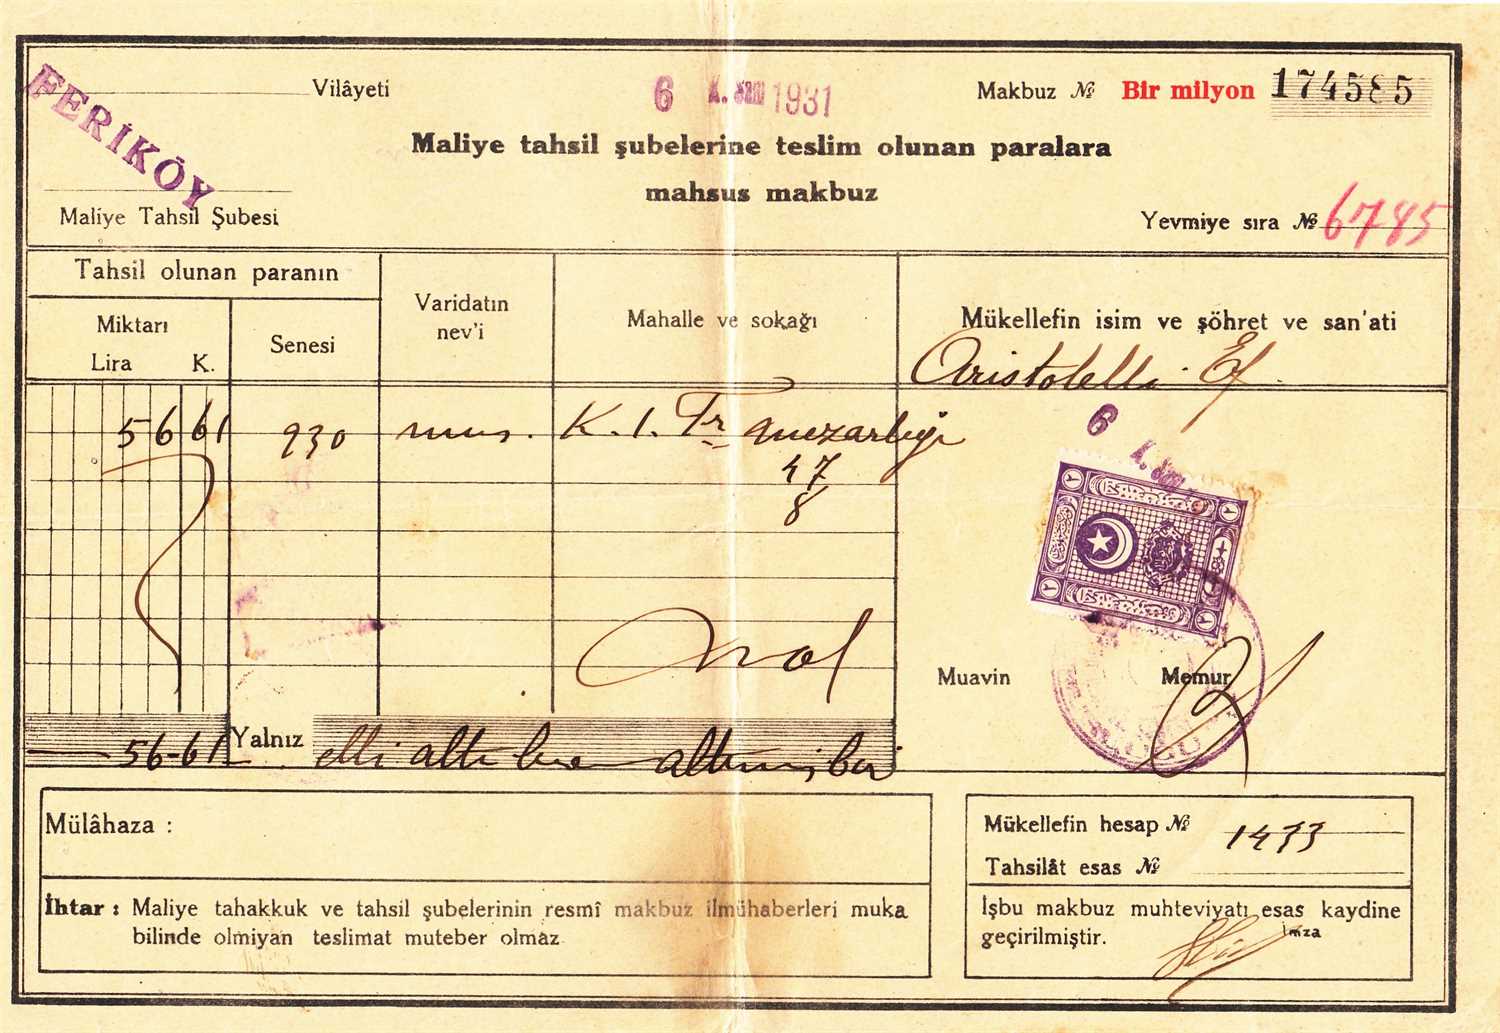 Vilâyeti
6 K. Sani 1931
Makbuz № Bir milyon 174585
FERİKÖY
Maliye tahsil şubelerine teslim olunan paralara
mahsus makbuz
Maliye Tahsil Şubesi
Yevmiye sıra № 6785
Tahsil olunan paranın
Miktarı
Lira K.
Senesi
Varidatın
nev'i
Mahalle ve sokağı
Mükellefin isim ve şöhret ve san'ati
Aristotelli Ef.
56 61 930 mus. K. 1. Fr
47
8
6 K. Sani
٢ ٢
٢ ٢
Muavin Memur
56-61 Yalnız elli altı lira altmış bir
Mülâhaza :
Mükellefin hesap № 1433
Tahsilât esas №
İhtar : Maliye tahakkuk ve tahsil şubelerinin resmî makbuz ilmühaberleri muka
bilinde olmiyan teslimat muteber olmaz
İşbu makbuz muhteviyatı esas kaydine
geçirilmiştir.
İmza